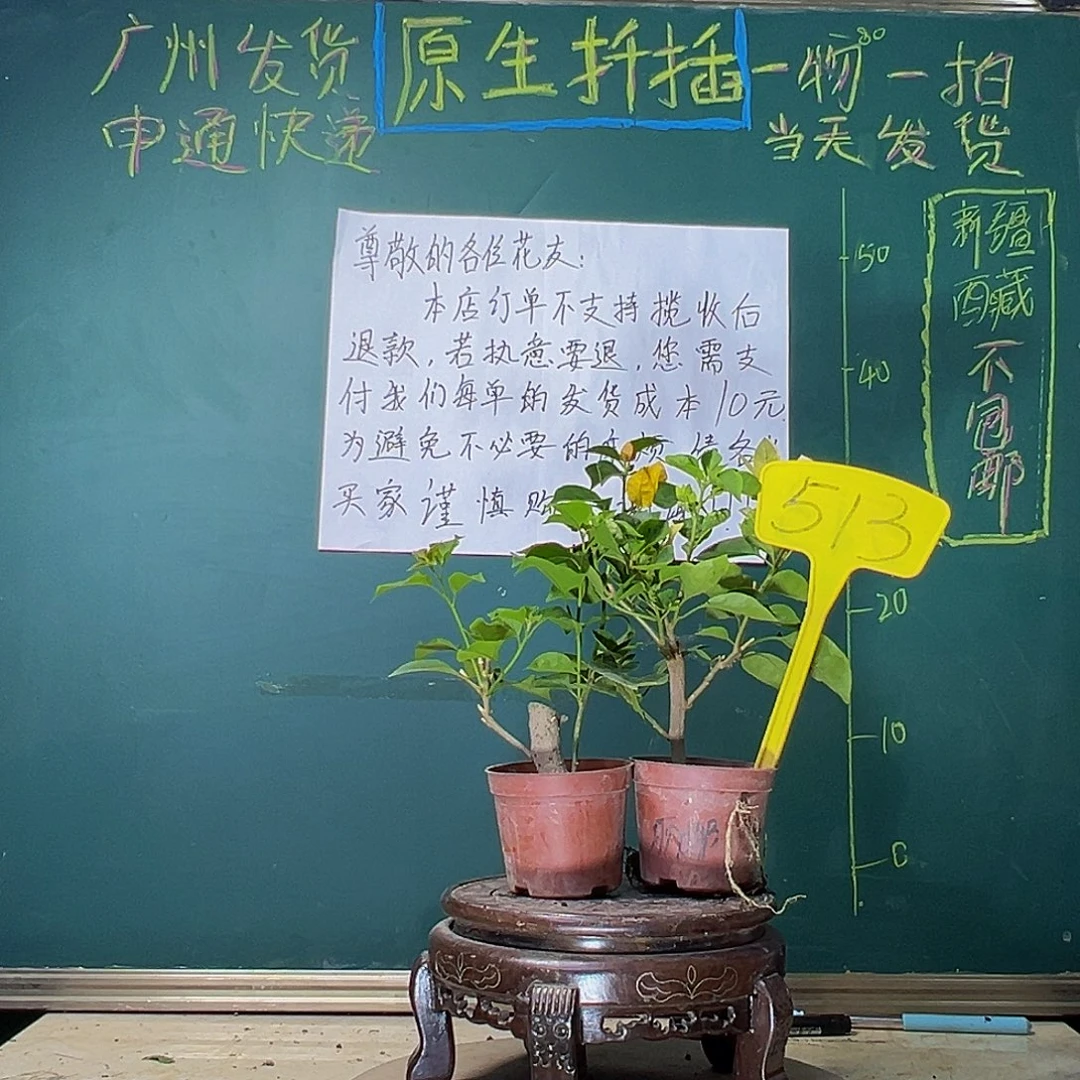 广州发货
申通快递
原生扦插
一物一拍
当天发货
尊敬的各位花友：
本店订单不支持揽收后
退款，若执意要退，您需支
付我们每单的发货成本10元
为避免不必要的
买家谨慎购
513
新疆
西藏
不包邮
50
40
20
10
0